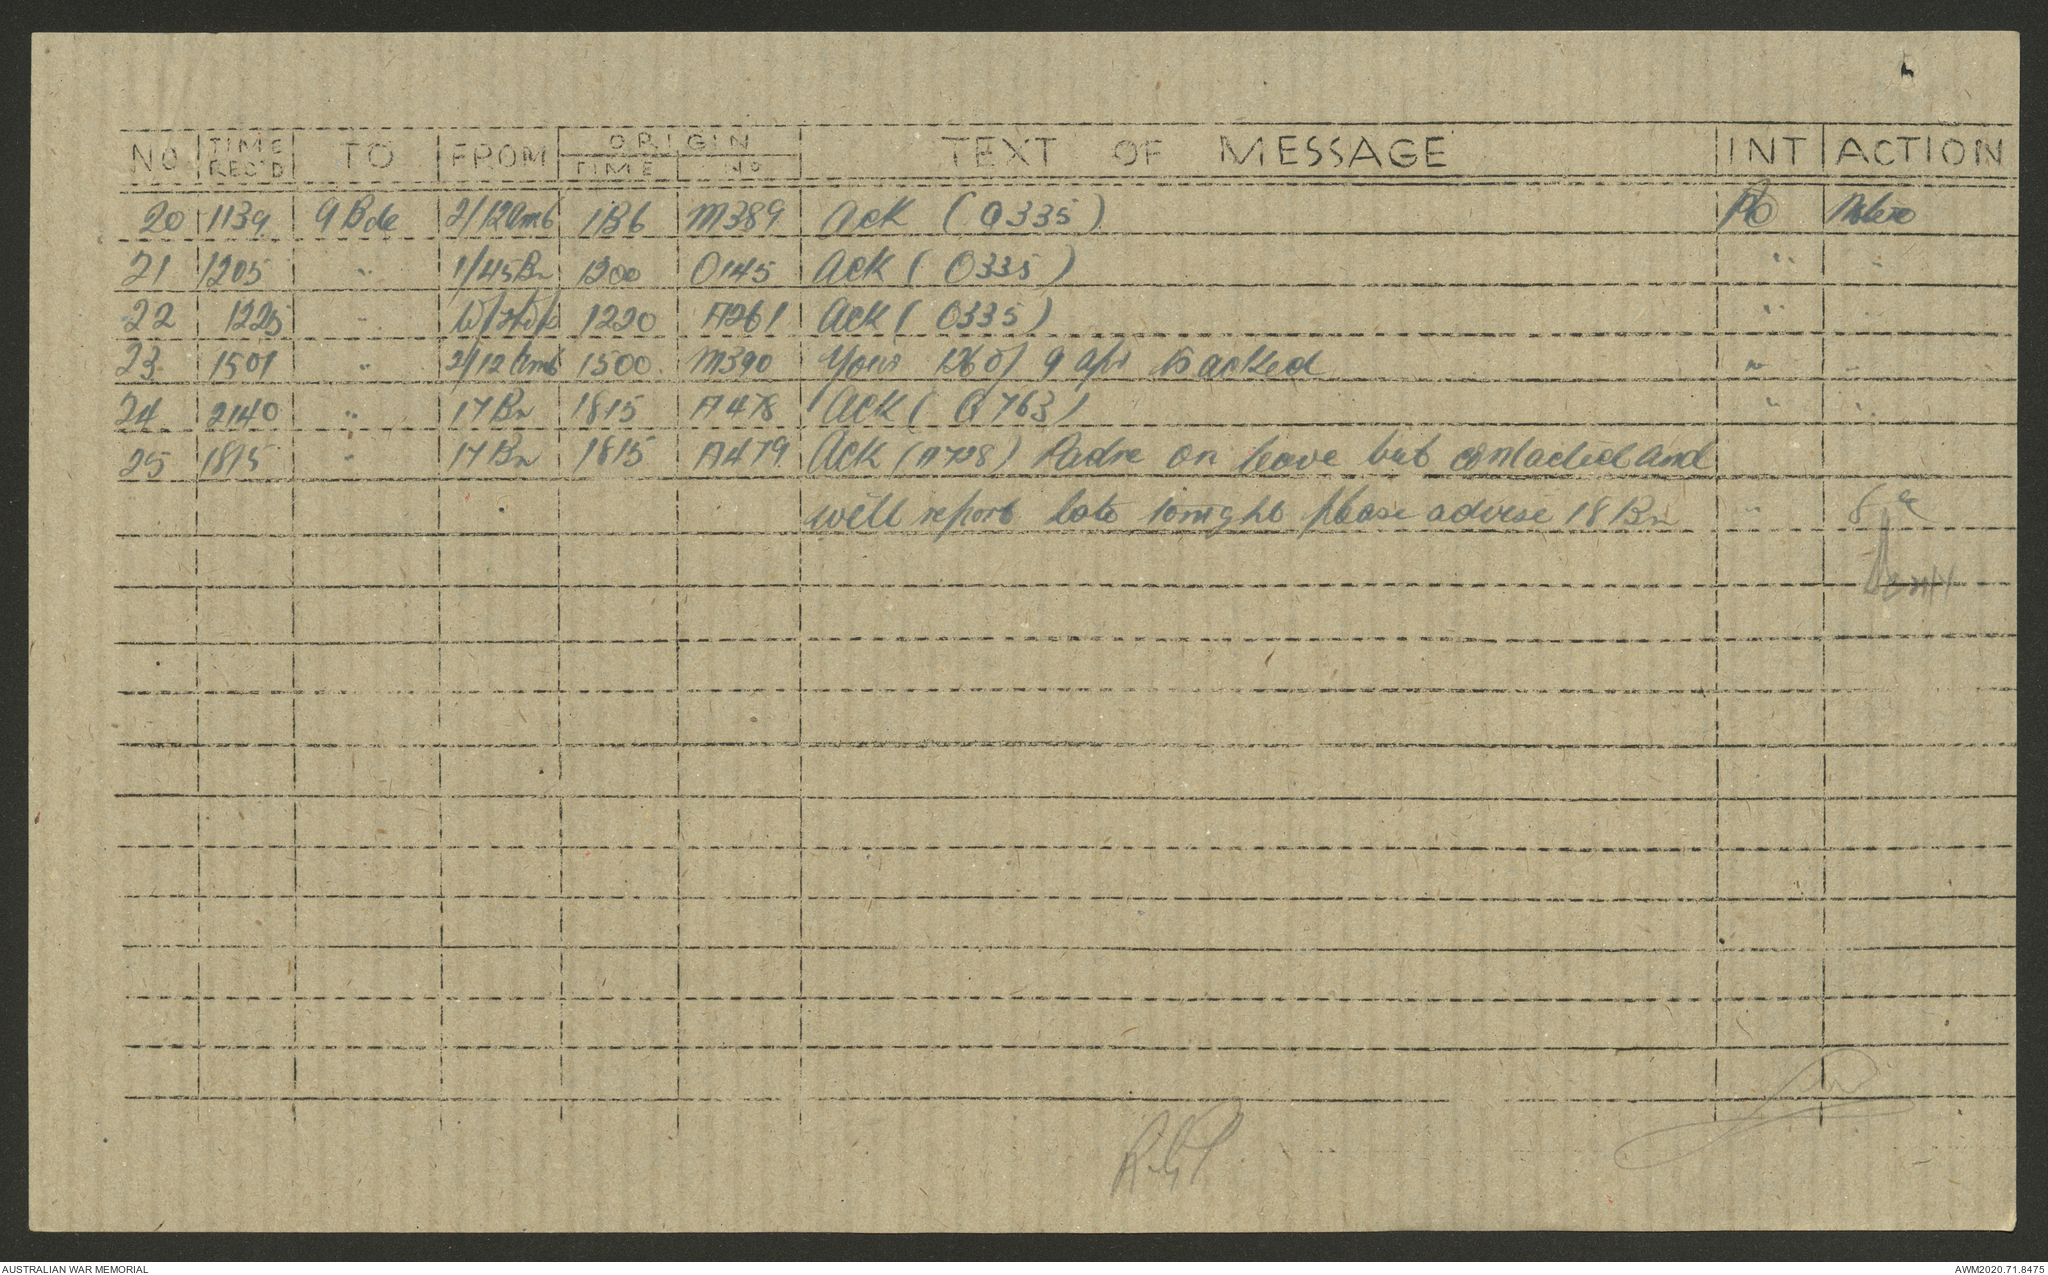 NO TIME REC'D TO FROM ORIGIN TIME NO TEXT OF MESSAGE INT ACTION
20 1139 9 Bde 2/12 Amb M389 Ack (O335)
21 1205 " 1/45 Bn 1200 O145 Ack (O335) " "
22 1225 " 1220 A261 Ack (O335) " "
23 1501 " 2/12 Amb 1500 M390 Your of 9 Apr " "
24 2140 " 17 Bn 1815 A478 Ack (Q763) " "
25 1815 " 17 Bn 1815 A479 Ack (A728) Padre on leave but contacted and
will report late tonight please advise 18 Bn "
AUSTRALIAN WAR MEMORIAL
AWM2020.71.8475